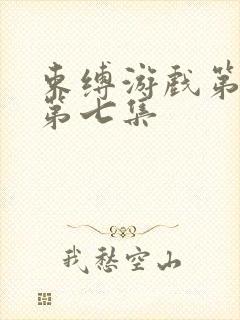 束缚游戏第
第七集
我愁空山